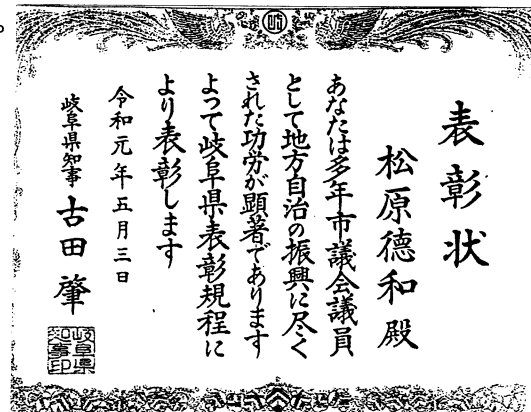 表彰状
松原德和殿
あなたは多年市議会議員
として地方自治の振興に尽く
された功労が顕著であります
よって岐阜県表彰規程に
より表彰します
令和元年五月三日
岐阜県知事 古田 肇
岐阜県
知事印